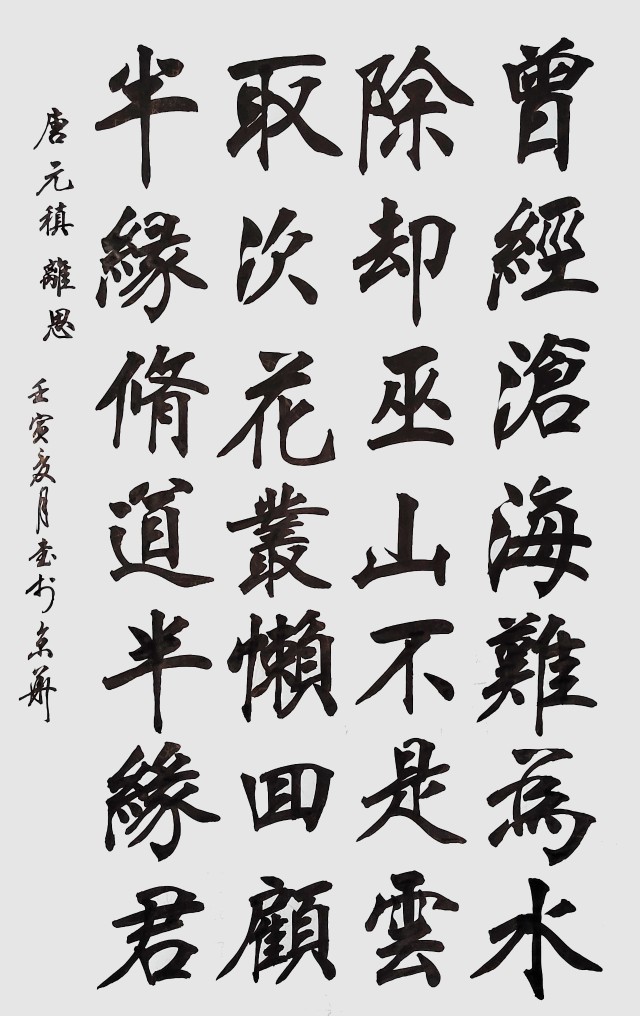 曾經滄海難為水
除却巫山不是雲
取次花叢懶回顧
半緣脩道半緣君
唐元稹離思
壬寅夏月書於京華